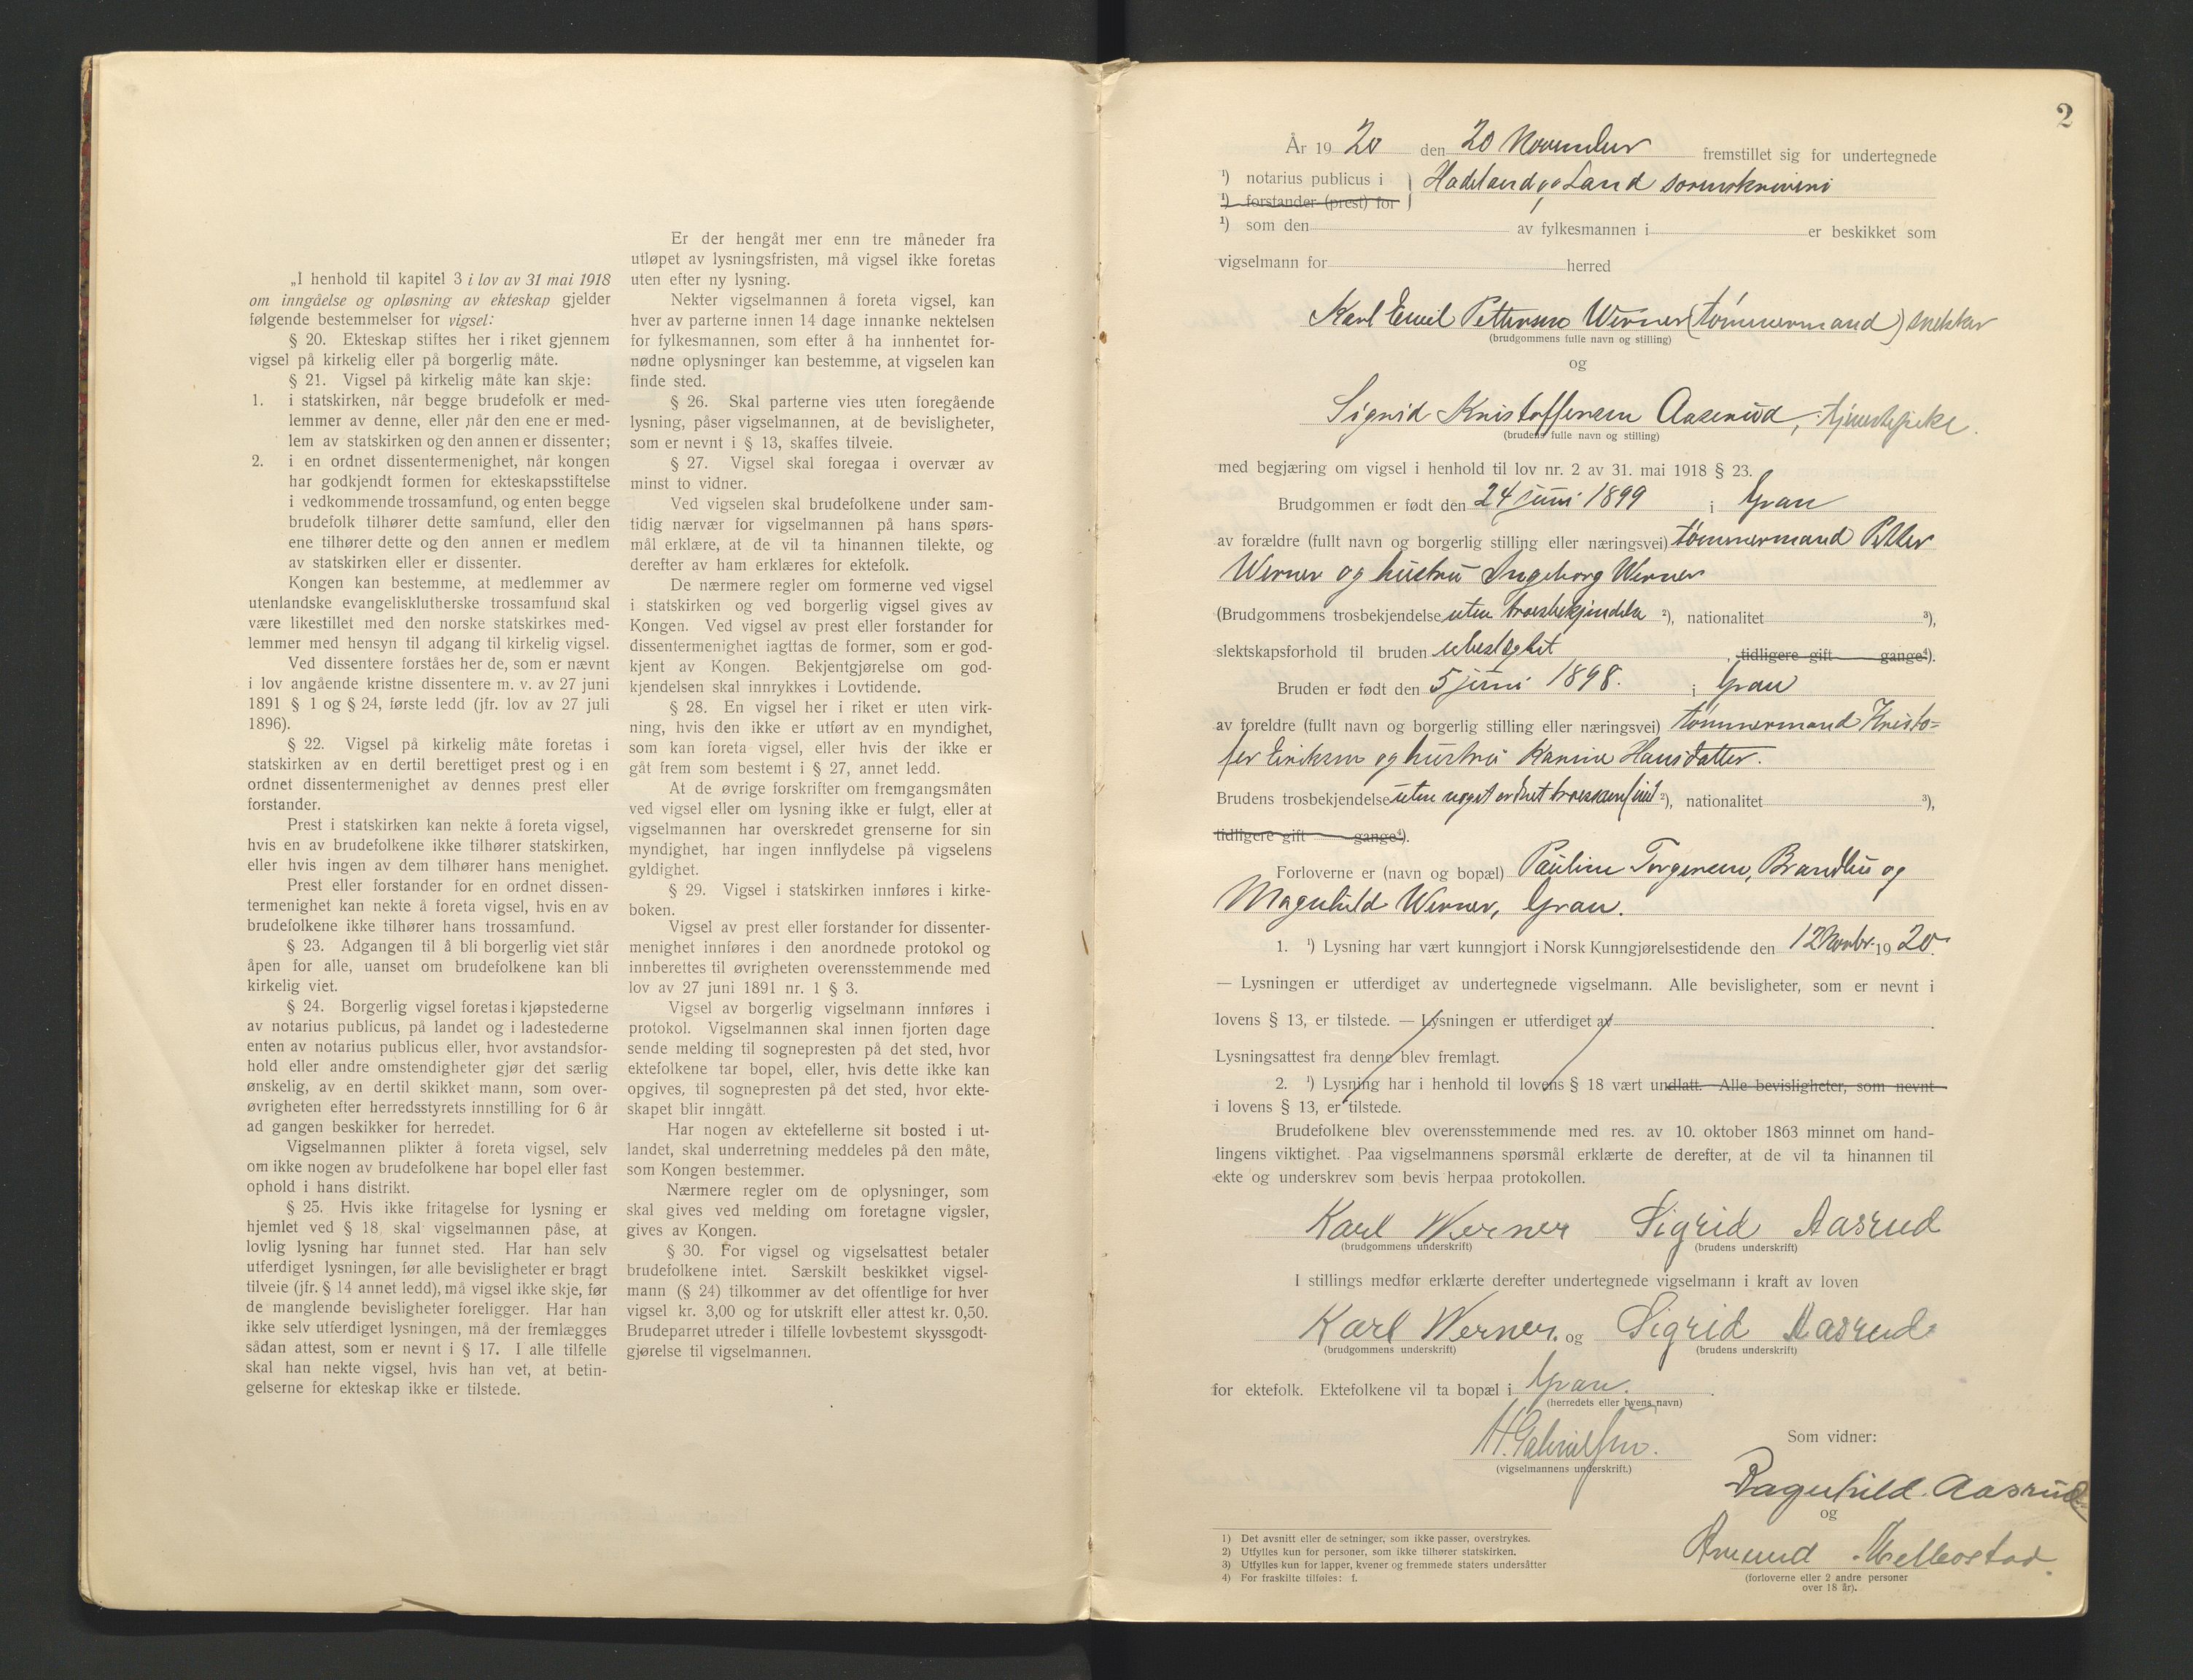 „I henhold til kapitel 3 i lov av 31 mai 1918
om inngåelse og opløsning av ekteskap gjelder
følgende bestemmelser for vigsel:
§ 20. Ekteskap stiftes her i riket gjennem
vigsel på kirkelig eller på borgerlig måte.
§ 21. Vigsel på kirkelig måte kan skje:
1. i statskirken, når begge brudefolk er med-
lemmer av denne, eller når den ene er med-
lem av statskirken og den annen er dissenter;
2. i en ordnet dissentermenighet, når kongen
har godkjendt formen for ekteskapsstiftelse
i vedkommende trossamfund, og enten begge
brudefolk tilhører dette samfund, eller den
ene tilhører dette og den annen er medlem
av statskirken eller er dissenter.
Kongen kan bestemme, at medlemmer av
utenlandske evangelisklutherske trossamfund skal
være likestillet med den norske statskirkes med-
lemmer med hensyn til adgang til kirkelig vigsel.
Ved dissentere forståes her de, som er nævnt
i lov angående kristne dissentere m. v. av 27 juni
1891 § 1 og § 24, første ledd (jfr. lov av 27 juli
1896).
§ 22. Vigsel på kirkelig måte foretas i
statskirken av en dertil berettiget prest og i en
ordnet dissentermenighet av dennes prest eller
forstander.
Prest i statskirken kan nekte å foreta vigsel,
hvis en av brudefolkene ikke tilhører statskirken,
eller hvis ingen av dem tilhører hans menighet.
Prest eller forstander for en ordnet dissen-
termenighet kan nekte å foreta vigsel, hvis en av
brudefolkene ikke tilhører hans trossamfund.
§ 23. Adgangen til å bli borgerlig viet står
åpen for alle, uanset om brudefolkene kan bli
kirkelig viet.
§ 24. Borgerlig vigsel foretas i kjøpstederne
av notarius publicus, på landet og i ladestederne
enten av notarius publicus eller, hvor avstandsfor-
hold eller andre omstendigheter gjør det særlig
ønskelig, av en dertil skikket mann, som over-
øvrigheten efter herredsstyrets innstilling for 6 år
ad gangen beskikker for herredet.
Vigselmannen plikter å foreta vigsel, selv
om ikke nogen av brudefolkene har bopel eller fast
ophold i hans distrikt.
§ 25. Hvis ikke fritagelse for lysning er
hjemlet ved § 18 skal vigselmannen påse, at
lovlig lysning har funnet sted. Har han selv
utferdiget lysningen, før alle bevisligheter er bragt
tilveie (jfr. § 14 annet ledd), må vigsel ikke skje, før
de manglende bevisligheter foreligger. Har han
ikke selv utferdiget lysningen, må der fremlægges
sådan attest, som er nevnt i § 17. I alle tilfelle
skal han nekte vigsel, hvis han vet, at betin-
gelserne for ekteskap ikke er tilstede.
Er der hengåt mer enn tre måneder fra
utløpet av lysningsfristen, må vigsel ikke foretas
uten efter ny lysning.
Nekter vigselmannen å foreta vigsel, kan
hver av parterne innen 14 dage innanke nektelsen
for fylkesmannen, som efter å ha innhentet for-
nødne oplysninger kan bestemme, at vigselen kan
finde sted.
§ 26. Skal parterne vies uten foregående
lysning, påser vigselmannen, at de bevisligheter,
som er nevnt i § 13, skaffes tilveie.
§ 27. Vigsel skal foregaa i overvær av
minst to vidner.
Ved vigselen skal brudefolkene under sam-
tidig nærvær for vigselmannen på hans spørs-
mål erklære, at de vil ta hinannen tilekte, og
derefter av ham erklæres for ektefolk.
De nærmere regler om formerne ved vigsel
i statskirken og ved borgerlig vigsel gives av
Kongen. Ved vigsel av prest eller forstander for
dissentermenighet iagttas de former, som er god-
kjent av Kongen. Bekjentgjørelse om god-
kjendelsen skal innrykkes i Lovtidende.
§ 28. En vigsel her i riket er uten virk-
ning, hvis den ikke er utført av en myndighet,
som kan foreta vigsel, eller hvis der ikke er
gåt frem som bestemt i § 27, annet ledd.
At de øvrige forskrifter om fremgangsmåten
ved vigsel eller om lysning ikke er fulgt, eller at
vigselmannen har overskredet grenserne for sin
myndighet, har ingen innflydelse på vigselens
gyldighet.
§ 29. Vigsel i statskirken innføres i kirke-
boken.
Vigsel av prest eller forstander for dissenter-
menighet innføres i den anordnede protokol og
innberettes til øvrigheten overensstemmende med
lov av 27 juni 1891 nr. 1 § 3.
Vigsel av borgerlig vigselmann innføres i
protokol. Vigselmannen skal innen fjorten dage
sende melding til sognepresten på det sted, hvor
ektefolkene tar bopel, eller, hvis dette ikke kan
opgives, til sognepresten på det sted, hvor ekte-
skapet blir inngått.
Har nogen av ektefellerne sit bosted i ut-
landet, skal underretning meddeles på den måte,
som Kongen bestemmer.
Nærmere regler om de oplysninger, som
skal gives ved melding om foretagne vigsler,
gives av Kongen.
§ 30. For vigsel og vigselsattest betaler
brudefolkene intet. Særskilt beskikket vigsel-
mann (§ 24) tilkommer av det offentlige for hver
vigsel kr. 3,00 og for utskrift eller attest kr. 0,50.
Brudeparret utreder i tilfelle lovbestemt skyssgodt-
gjørelse til vigselmannen.
2
År 1920 den 20 November fremstillet sig for undertegnede
1) notarius publicus i Hadeland og Land sorenskriveri
1) forstander (prest) for
1) som den av fylkesmannen i er beskikket som
vigselmann for herred
Karl Emil Pettersen Werner (tømmermand) snekker
(brudgommens fulle navn og stilling)
og
Sigrid Kristoffersen Aaserud, tjenestepike.
(brudens fulle navn og stilling)
med begjæring om vigsel i henhold til lov nr. 2 av 31. mai 1918 § 23.
Brudgommen er født den 24 juni 1899 i Gran
av forældre (fullt navn og borgerlig stilling eller næringsvei) tømmermand Petter
Werner og hustru Ingeborg Werner
(Brudgommens trosbekjendelse uten trosbekjendelse 2), nationalitet 3),
slektskapsforhold til bruden ubeslegtet, tidligere gift gange4).
Bruden er født den 5 juni 1898. i Gran
av foreldre (fullt navn og borgerlig stilling eller næringsvei) tømmermand Kristo-
fer Eriksen og hustru Karine Hansdatter.
Brudens trosbekjendelse uten noget ordnet trossamfund 2), nationalitet 3),
tidligere gift gange4).
Forloverne er (navn og bopæl) Pauline Torgersen, Brandbu og
Magnhild Werner, Gran.
1. 1) Lysning har vært kunngjort i Norsk Kunngjørelsestidende den 12 Novbr. 1920.
— Lysningen er utferdiget av undertegnede vigselmann. Alle bevisligheter, som er nevnt i
lovens § 13, er tilstede. — Lysningen er utferdiget av
Lysningsattest fra denne blev fremlagt.
2. 1) Lysning har i henhold til lovens § 18 vært undlatt. Alle bevisligheter, som nevnt
i lovens § 13, er tilstede.
Brudefolkene blev overensstemmende med res. av 10. oktober 1863 minnet om hand-
lingens viktighet. Paa vigselmannens spørsmål erklærte de derefter, at de vil ta hinannen til
ekte og underskrev som bevis herpaa protokollen.
Karl Werner Sigrid Aasrud
(brudgommens underskrift) (brudens underskrift)
I stillings medfør erklærte derefter undertegnede vigselmann i kraft av loven
Karl Werner. og Sigrid Aasrud
(brudgommens underskrift) (brudens underskrift)
for ektefolk. Ektefolkene vil ta bopæl i Gran.
(herredets eller byens navn)
H. Gabrielsen.
(vigselmannens underskrift.)
Som vidner:
Ragnhild Aasrud
og
Amund Mellbostad
(forloverne eller 2 andre personer
over 18 år).
1) Det avsnitt eller de setninger, som ikke passer, overstrykes.
2) Utfylles kun for personer, som ikke tilhører statskirken.
3) Utfylles kun for lapper, kvener og fremmede staters undersåtter
4) For fraskilte tilføies: f.